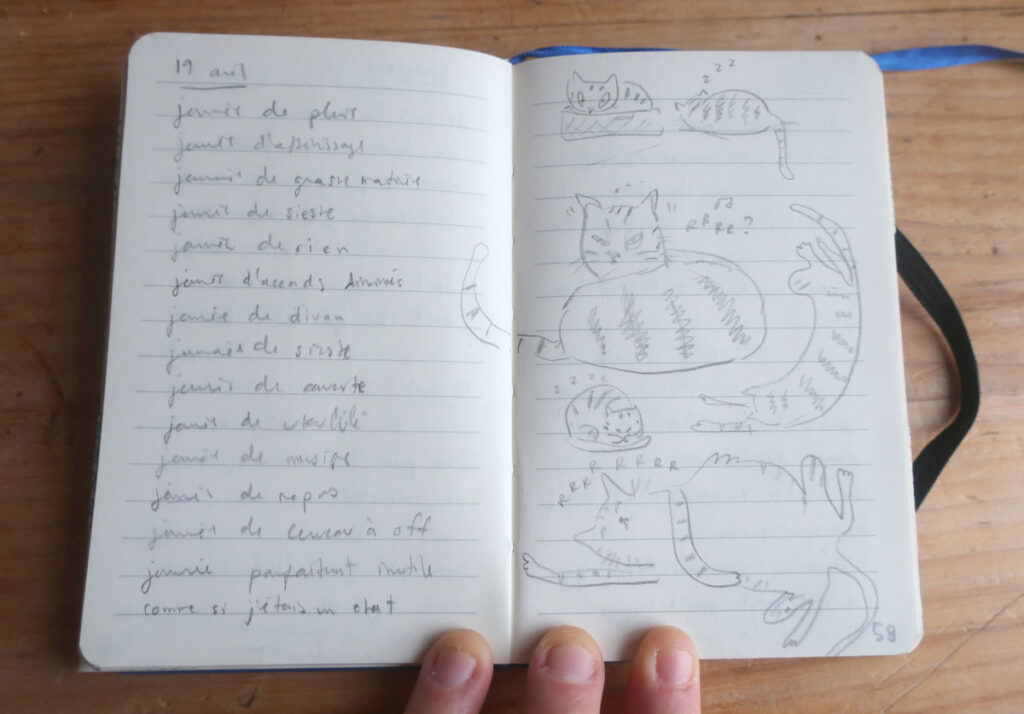 19 avril
journée de pluie
journée
journée de grasse matinée
journée de sieste
journée de rien
journée d'accords diminués
journée de divan
journée de sieste
journée de couverte
journée de
journée de musique
journée de repos
journée de cerveau à off
journée parfaitement inutile
comme si j'étais un chat
z z z
RRRR?
z z z z
RRRRRRRR
58